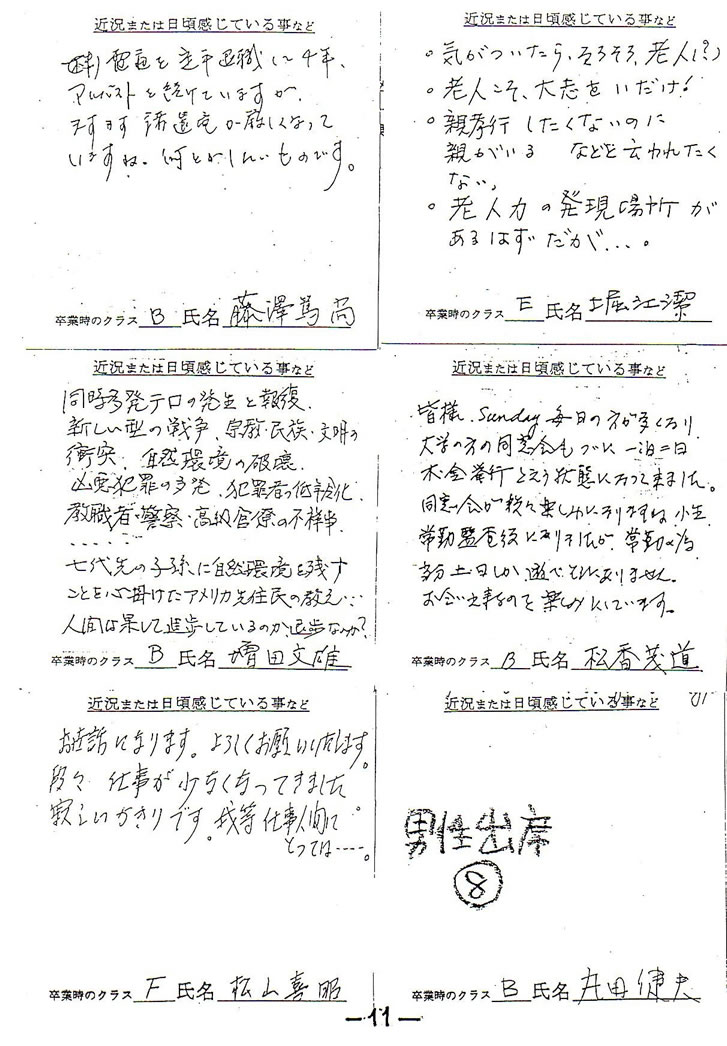 近況または日頃感じている事など
電通を定年退職して4年、
アルバイトを続けていますが、
ますます諸環境が厳しくなって
いますね。何とかしたいものです。
卒業時のクラス B 氏名 藤澤篤尚
近況または日頃感じている事など
○気がついたら、そろそろ、老人(?)
○老人こそ、大志をいだけ!
○親孝行したくないのに
親がいる などと云われたく
ない。
○老人力の発現場所が
あるはずだが....。
卒業時のクラス E 氏名 堀江潔
近況または日頃感じている事など
同時多発テロの発生と報復、
新しい型の戦争、宗教・民族・文明の
衝突、自然環境の破壊、
凶悪犯罪の多発、犯罪者の低年齢化、
教職者・警察・高級官僚の不祥事、
......
七代先の子孫に自然環境を残す
ことを心掛けたアメリカ先住民の教え…
人間は果して進歩しているのか退歩なのか?
卒業時のクラス B 氏名 増田文雄
近況または日頃感じている事など
皆様、Sunday毎日の方が多くなり
大学の方の同窓会もついに一泊二日
木・金挙行という状態になって来ました。
同窓会が段々楽しみになりますね 小生
常勤監査役になりましたが、常勤の為
土日しか遊べません。
お会い出来るのを楽しみにしています。
卒業時のクラス B 氏名 松香茂道
近況または日頃感じている事など
お世話になります。よろしくお願いいたします。
段々 仕事が少なくなってきました
寂しいかぎりです。我等仕事人間に
とっては……。
卒業時のクラス F 氏名 松山喜昭
近況または日頃感じている事など
男性出席
⑧
卒業時のクラス B 氏名 丸田健夫
—11—